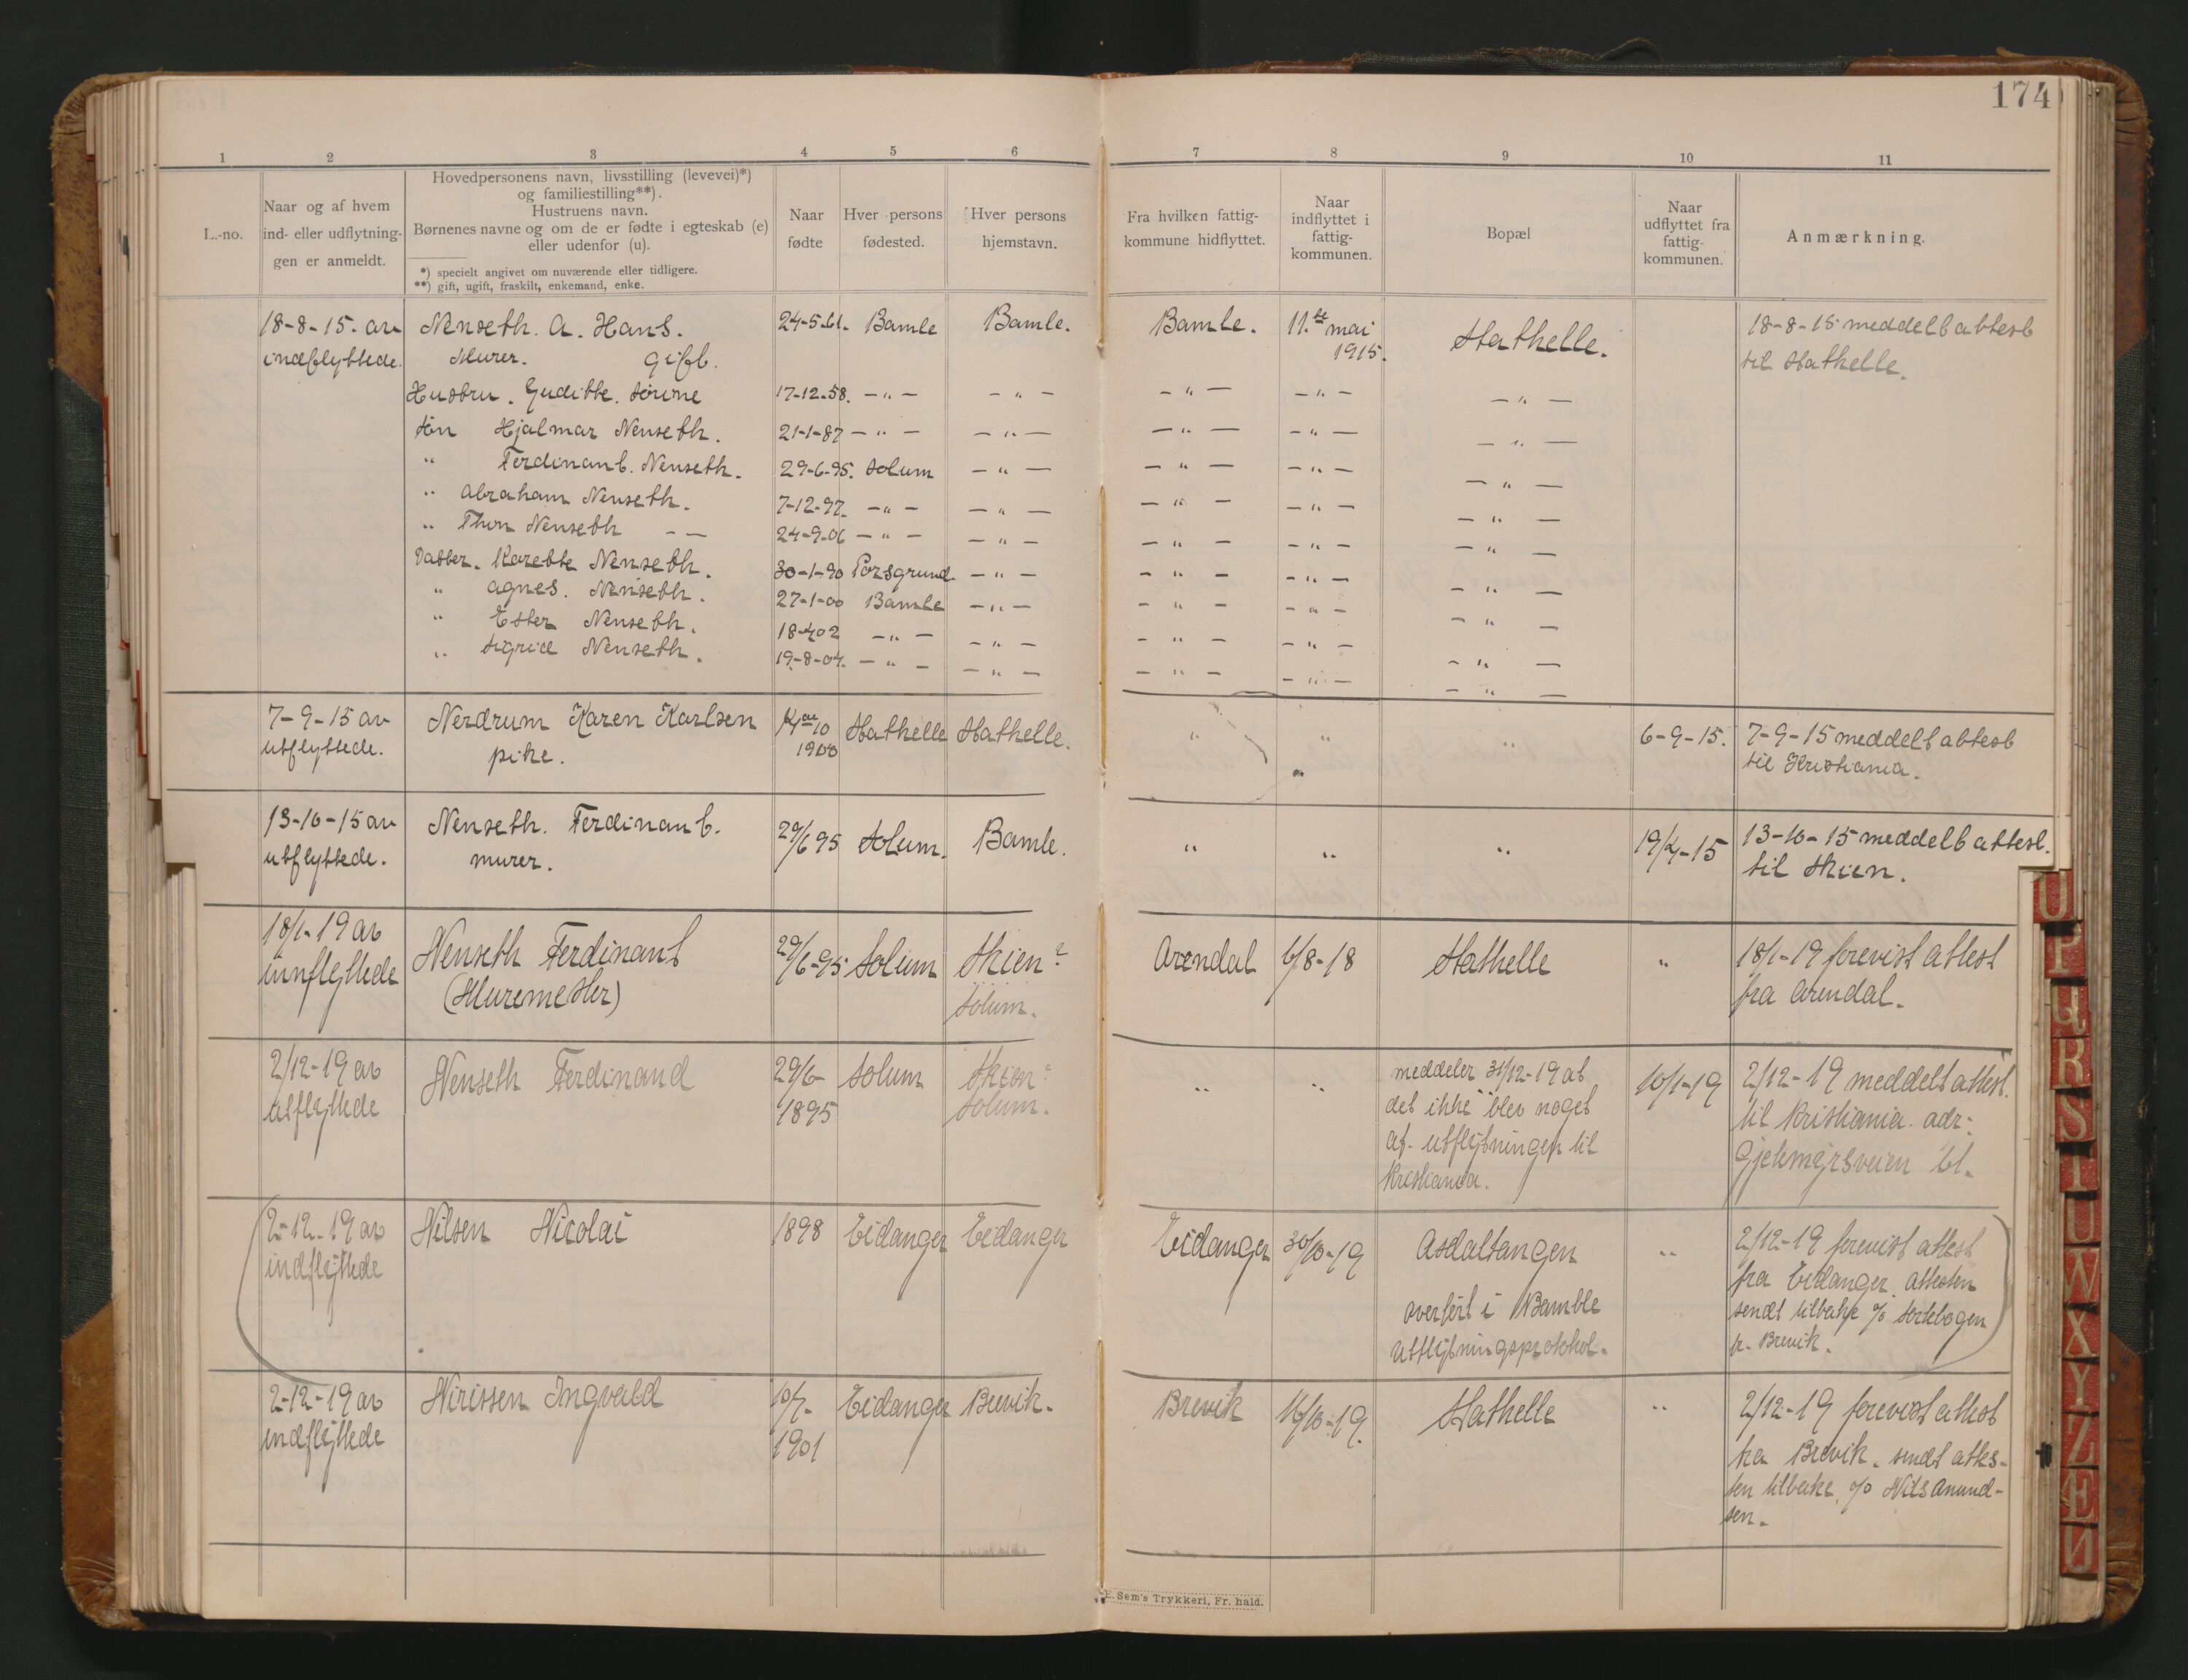 174
1 2 3 4 5 6 7 8 9 10 11
L.-no.
Naar og af hvem
ind- eller udflytnin-
gen er anmeldt.
Hovedpersonens navn, livsstilling (levevei)*)
og familiestilling**).
Hustruens navn.
Børnenes navne og om de er fødte i egteskab (e)
eller udenfor (u).
*) specielt angivet om nuværende eller tidligere.
**) gift, ugift, fraskilt, enkemand, enke.
Naar
fødte
Hver persons
fødested.
Hver persons
hjemstavn.
Fra hvilken fattig-
kommune hidflyttet.
Naar
indflyttet i
fattig-
kommunen.
Bopæl
Naar
udflyttet fra
fattig-
kommunen.
Anmærkning.
18-8-15. av Nenseth. A. Hans. 24-5-61. Bamle Bamle. Bamle. 11.te mai Stathelle. 18-8-15 meddelt attest
indflyttede. Murer. Gift. 1915. til Stathelle.
Hustru. Guditte. Sirine 17-12-58. -"- -"- -"- -"- -"-
Søn Hjalmar Nenseth. 21-1-87 -"- -"- -"- -"- -"-
" Ferdinant. Nenseth. 29-6-95. Solum -"- -"- -"- -"-
" Abraham Nenseth. 7-12-97. -"- -"- -"- -"- -"-
" Thor Nenseth -- 24-9-06 -"- -"- -"- -"- -"-
Datter. Karette Nenseth. 30-1-90 Porsgrund. -"- -"- -"- -"-
" Agnes. Nenseth. 27-1-00 Bamle -"- -"- -"- -"-
" Ester Nenseth. 18-4-02 -"- -"- -"- -"- -"-
" Sigrid Nenseth. 19-8-04. -"- -"- -"- -"- -"-
7-9-15 av Nerdrum Karen Karlsen 10 Stathelle Stathelle. " " " 6-9-15. 7-9-15 meddelt attest
utflyttede. pike. 1900 " til Kristiania.
13-10-15 av Nenseth. Ferdinant. 29/6 95 Solum. Bamle. " " " 19/4-15 13-10-15 meddelt attest.
utflyttede. murer. til Skien.
18/1-19 av Nenseth Ferdinant 29/6-95 Solum Skien? Arendal 6/8-18 Stathelle " 18/1-19 forevist attest
innflyttede (Muremester) Solum. fra Arendal.
2/12-19 av Nenseth Ferdinand 29/6- Solum Skien? " " meddeler 31/12-19 at 10/1-19 2/12-19 meddelt attest.
utflyttede 1895 Solum. det ikke blev noget til Kristiania. adr:
af utflytningen til Gjekmyrsveien 61.
Kristiania.
2-12-19 av Nilsen Nicolai 1898 Eidanger Eidanger Eidanger 30/10-19 Asdaltangen " 2/12-19 forevist attest
indflyttede fra Eidanger. attesten
overført i Bamble sendt tilbake %
utflytningsprotokol. fr. Brevik.
2-12-19 av Nirissen Ingvald 10/7- Eidanger Brevik. Brevik 16/10-19. Stathelle " 2/12-19 forevist attest
indflyttede 1901 fra Brevik. sendt attes-
ten tilbake % Nils Amund-
sen.
E. Sem's Trykkeri, Fr. hald.
O
P
Q
R
S
T
U
W
X
Y
Z
Æ